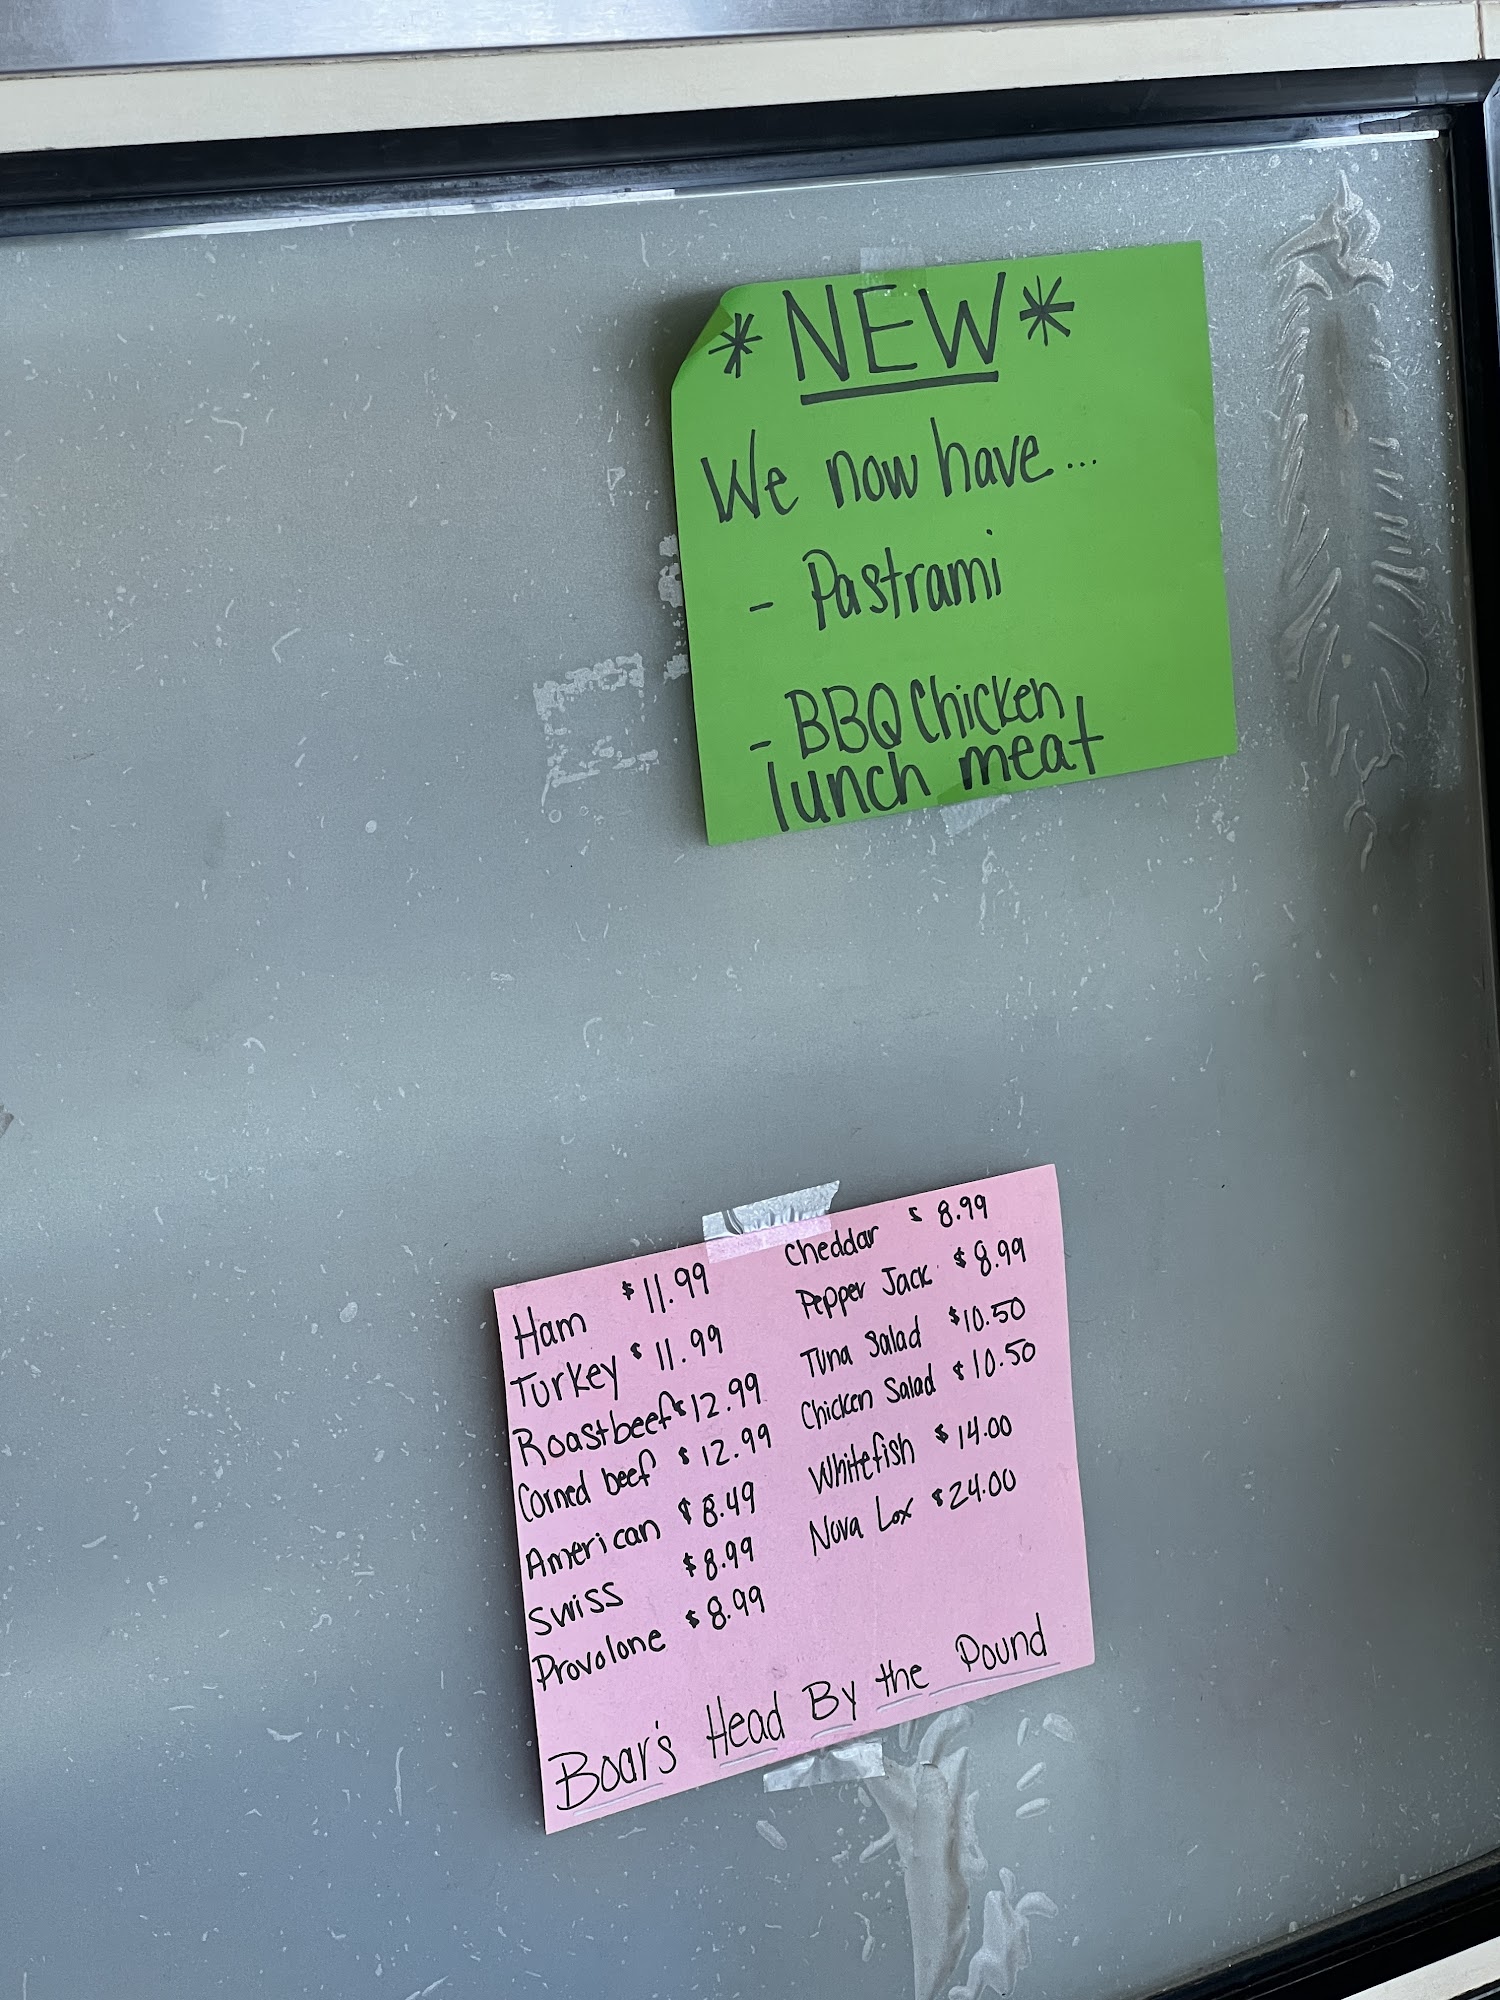 *NEW*
We now have...
- Pastrami
- BBQ Chicken
lunch meat
Ham $11.99
Turkey $11.99
Roastbeef $12.99
Corned beef $12.99
American $8.49
Swiss $8.99
Provolone $8.99
Cheddar $8.99
Pepper Jack $8.99
Tuna Salad $10.50
Chicken Salad $10.50
Whitefish $14.00
Nova Lox $24.00
Boar's Head By the Pound